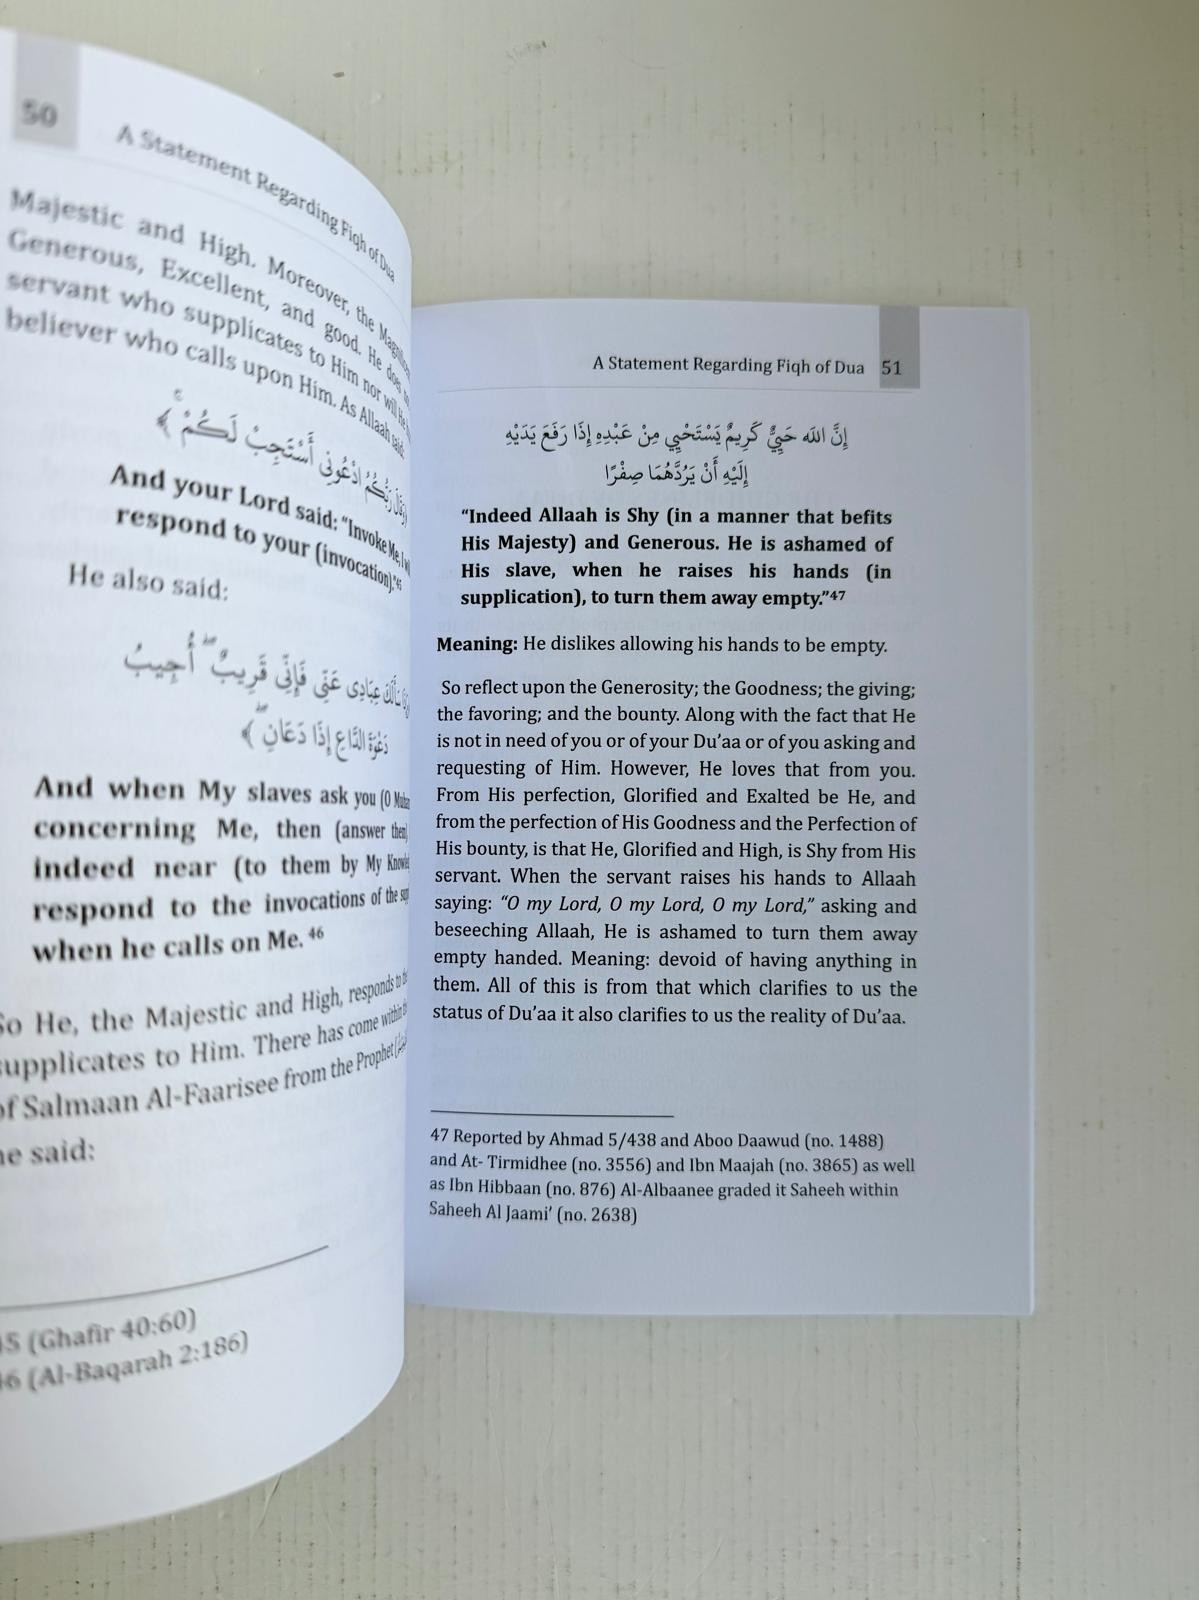 50
A Statement Regarding Fiqh of Dua
Majestic and High. Moreover, the
Generous, Excellent, and good. He does
servant who supplicates to Him nor will He
believer who calls upon Him. As Allaah said:
رَبُّكُمُ ادْعُونِي أَسْتَجِبْ لَكُمْ ۚ ﴾
And your Lord said: “Invoke Me, I
respond to your (invocation).”45
He also said:
عِبَادِي عَنِّي فَإِنِّي قَرِيبٌ ۖ أُجِيبُ
دَعْوَةَ الدَّاعِ إِذَا دَعَانِ ۖ ﴾
And when My slaves ask you (O
concerning Me, then (answer them)
indeed near (to them by My
respond to the invocations of the
when he calls on Me. 46
So He, the Majestic and High, responds to
supplicates to Him. There has come within
of Salmaan Al-Faarisee from the Prophet
he said:
45 (Ghafir 40:60)
46 (Al-Baqarah 2:186)
A Statement Regarding Fiqh of Dua 51
إِنَّ اللَّه حَيِيٌّ كَرِيمٌ يَسْتَحْيِي مِنْ عَبْدِهِ إِذَا رَفَعَ يَدَيْهِ
إِلَيْهِ أَنْ يَرُدَّهُمَا صِفْرًا
“Indeed Allaah is Shy (in a manner that befits
His Majesty) and Generous. He is ashamed of
His slave, when he raises his hands (in
supplication), to turn them away empty.”47
Meaning: He dislikes allowing his hands to be empty.
So reflect upon the Generosity; the Goodness; the giving;
the favoring; and the bounty. Along with the fact that He
is not in need of you or of your Du’aa or of you asking and
requesting of Him. However, He loves that from you.
From His perfection, Glorified and Exalted be He, and
from the perfection of His Goodness and the Perfection of
His bounty, is that He, Glorified and High, is Shy from His
servant. When the servant raises his hands to Allaah
saying: “O my Lord, O my Lord, O my Lord,” asking and
beseeching Allaah, He is ashamed to turn them away
empty handed. Meaning: devoid of having anything in
them. All of this is from that which clarifies to us the
status of Du’aa it also clarifies to us the reality of Du’aa.
47 Reported by Ahmad 5/438 and Aboo Daawud (no. 1488)
and At- Tirmidhee (no. 3556) and Ibn Maajah (no. 3865) as well
as Ibn Hibbaan (no. 876) Al-Albaanee graded it Saheeh within
Saheeh Al Jaami’ (no. 2638)